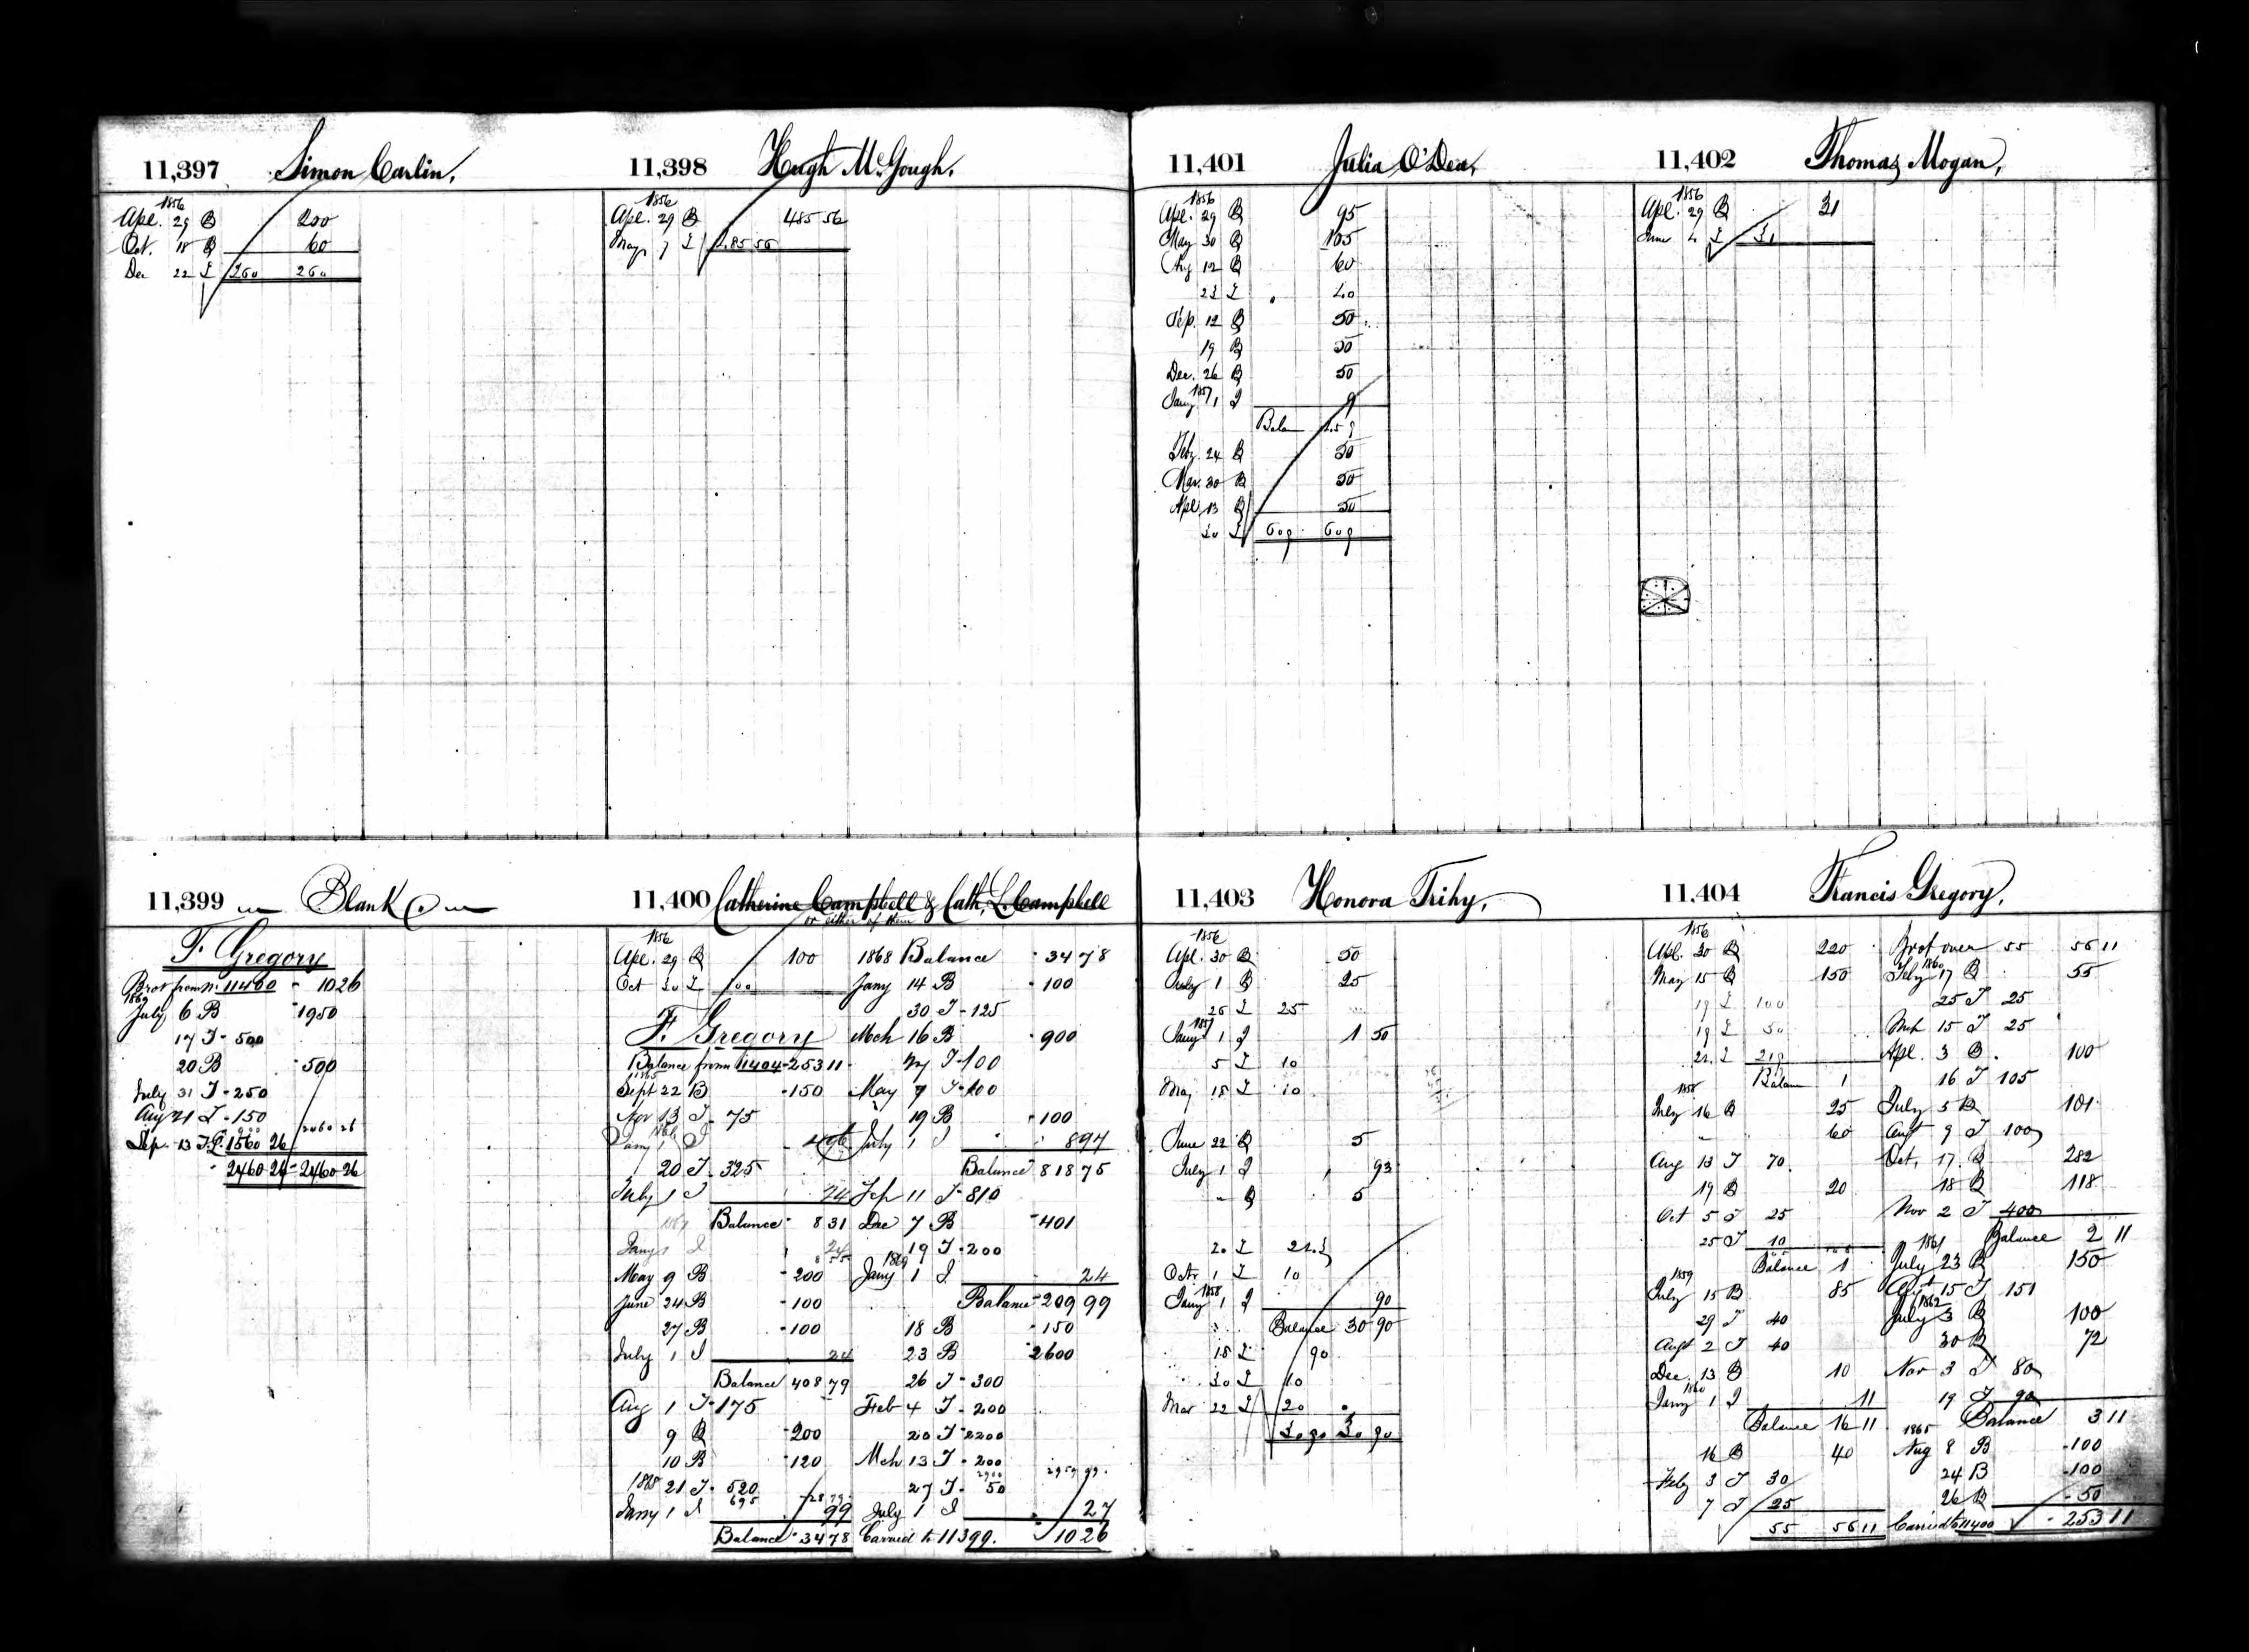 11,397 Simon Carlin,
1856
Apl. 29 B 200
Oct. 18 B 60
Dec 22 L 260 260
11,398 Hugh McGough,
1856
Apl. 29 B 485 56
May 7 L 485 56
11,399 Blank
F. Gregory
Brot from No 11400 1026
1869
July 6 B 1950
17 J 500
20 B 500
July 31 J 250
Aug 21 J 150
900 2460 26
Sep. 13 J.L. 1560 26
2460 26 2460 26
11,400 Catherine Campbell & Cath. L. Campbell
or either of them
1856
Apl. 29 B 100
Oct 30 L 100
F. Gregory
Balance from 11404 253 11
1865
Sept 22 B 150
Nov 13 J 75
1866
Jany 1 J
20 J 325
July 1 J 24
1867 Balance 8 31
Jany 1 J 24
8 55
May 9 B 200
June 24 B 100
27 B 100
July 1 J 24
Balance 408 79
Aug 1 J 175
9 B 200
10 B 120
21 J 520
1868 695 28 79
Jany 1 J 99
Balance 34 78
1868 Balance 34 78
Jany 14 B 100
30 J 125
Mch 16 B 900
24 J 100
May 7 J 100
19 B 100
July 1 J 8 97
Balance 818 75
Sep 11 J 810
Dec 7 B 401
19 J 200
1869
Jany 1 J 24
Balance 209 99
18 B 150
23 B 2600
26 J 300
Feb 4 J 200
20 J 2200
Mch 13 J 200
2900 2959 99
27 J 50
July 1 J 27
Carried to 11399. 10 26
11,401 Julia O'Dea,
1856
Apl. 29 B 95
May 30 B 105
Aug 12 B 60
23 L 40
Sep. 12 B 50
19 B 50
Dec. 26 B 50
1857
Jany 1 J 9
Balan 459
Feby. 24 B 50
Mar. 30 B 50
Apl 13 B 50
30 L 609 609
11,402 Thomas Mogan,
1856
Apl. 29 B 31
June 4 L 31
11,403 Honora Trihy,
1856
Apl. 30 B 50
July 1 B 25
25 L 25
1857
Jany 1 J 1 50
5 L 10
May 18 L 10
June 22 B 5
July 1 J 93
B 5
20 L
Octr 1 L 10
1858
Jany 1 J 90
Balance 30 90
18 L 90
30 L 10
Mar 22 L 20
30 90 30 90
11,404 Francis Gregory,
1856
Apl. 30 B 220
May 15 B 150
19 L 100
19 L 50
22 L 219
Balan 1
1858
July 16 B 25
60
Aug 13 J 70
19 B 20
Oct 5 J 25
25 J 10
Balance 1
1859
July 15 B 85
29 J 40
Augt 2 J 40
Dec. 13 B 10
1860
Jany 1 J 11
Balance 16 11
16 B 40
Feby 3 J 30
7 J 25
55 56 11
Brot over 55 56 11
1860
Feby 17 B 55
25 J 25
Mch 15 J 25
Apl. 3 B 100
16 J 105
July 5 B 101
Augt 9 J 100
Oct. 17 B 282
18 B 118
Nov 2 J 400
1861 Balance 2 11
July 23 B 150
15 J 151
1862
July 3 B 100
30 B 72
Nov 3 J 80
19 J 90
1865 Balance 3 11
Aug 8 B 100
24 B 100
26 B 50
Carried to 11400 253 11